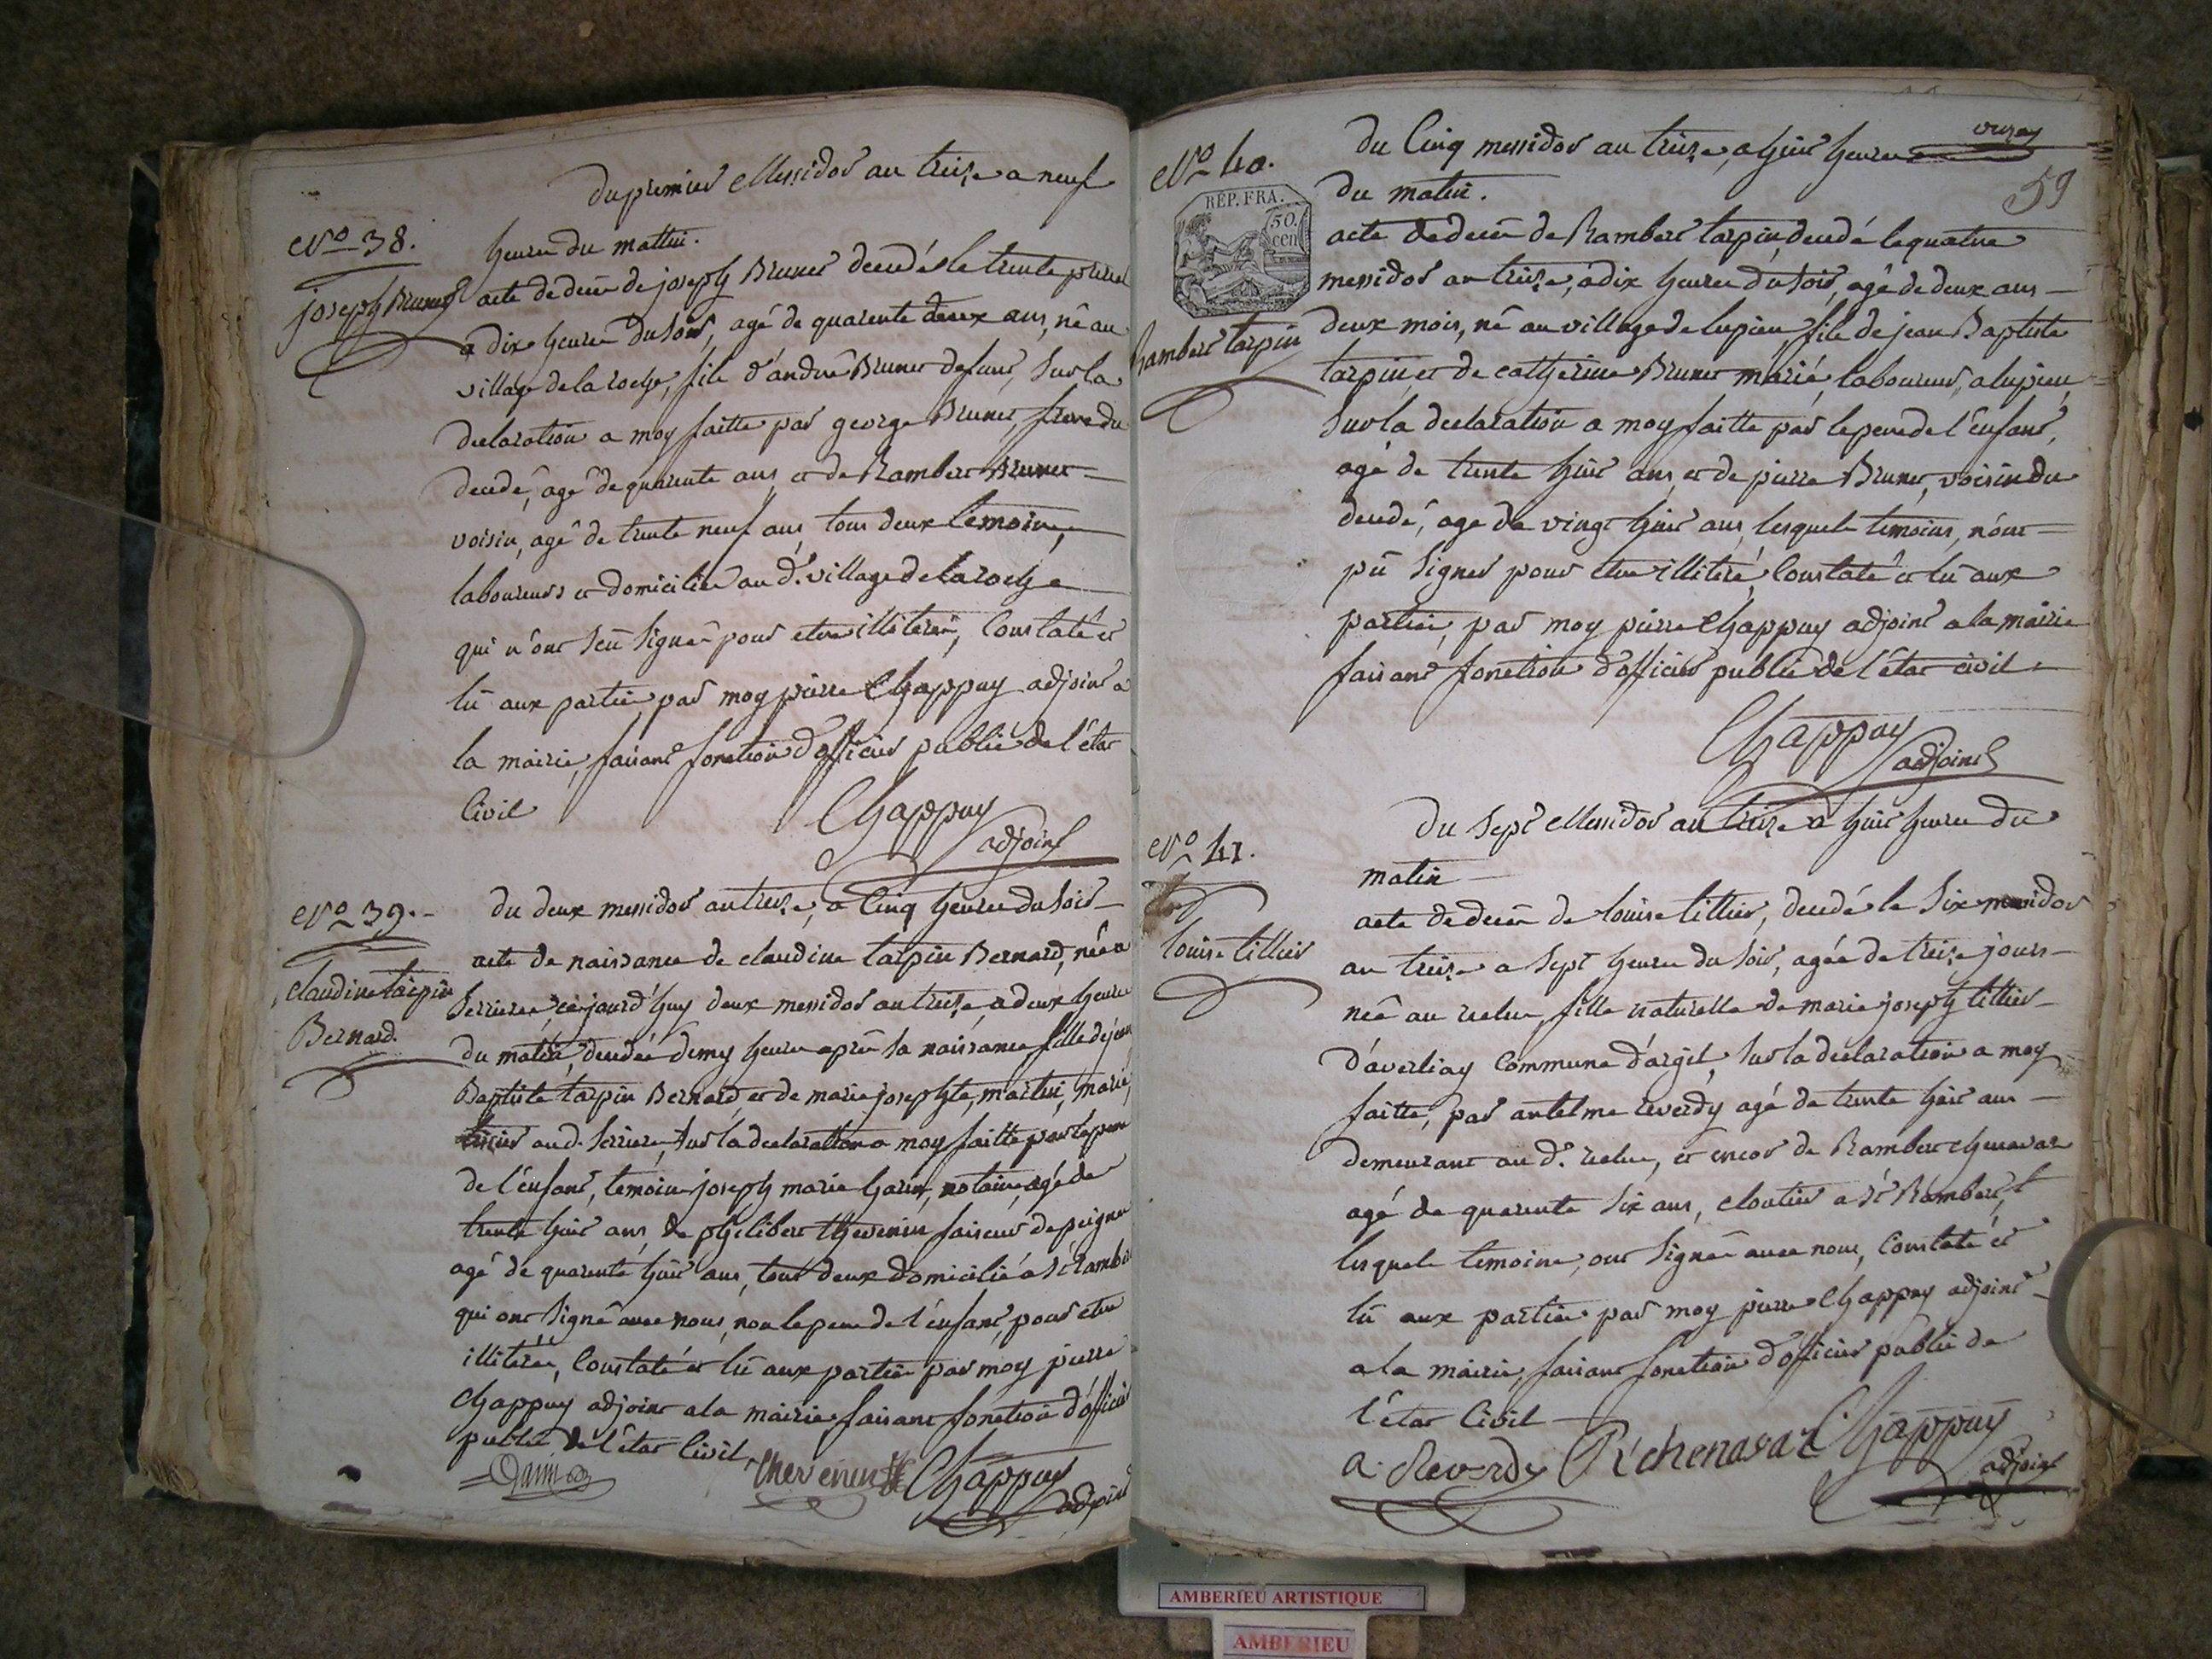 du premier Messidor an treize a neuf
heures du mattin.
N.o 38.
joseph Brunet
acte de décès de joseph Brunet décédé le trente prairial
a dix heures du soir, agé de quarente deux ans, né au
village de la roche, fils d'andré Brunet defunt, sur la
declaration a moy faitte par george Brunet, frere du
decedé, agé de quarente ans, et de Rambert Brunet
voisin, agé de trente neuf ans, tous deux temoins,
laboureurs et domiciliés au d. village de la roche
qui n'ont sçu signer pour etre illiteré, Constaté et
lû aux parties par moy pierre Chappuy adjoint a
la mairie, faisant fonction d'officier public de l'état
Civil
Chappuy
adjoint
N.o 39.
Claudine tarpin
Bernard.
du deux messidor an treize, a Cinq heures du soir
acte de naissance de claudine tarpin Bernard, née a
Serrieres, cejourd'huy deux messidor an treize, a deux heures
du matin, decedée demy heure après sa naissance fille de jean
Baptiste tarpin Bernard, et de marie josephte, martin, marié,
au d. Serriere, sur la declaration a moy faitte par le pere
de l'enfant, temoins joseph marie Garin, notaire, agé de
trente huit ans, de philibert thevenin faiseur de peignes
agé de quarente huit ans, tous deux domicilié a St rambert
qui ont signé avec nous, non le pere de l'enfant, pour etre
illiteré, Constaté et lû aux parties par moy pierre
Chappuy adjoint a la mairie, faisant fonction d'officier
public de l'état Civil,
thevenin Chappuy
adjoint
N.o 40.
Rambert tarpin
REP. FRA.
50.
cen
59
du Cinq messidor an treize, a huit heures
du matin.
acte de decès de Rambert tarpin decedé le quatre
messidor an treize, a dix heures du soir, agé de deux ans
deux mois, né au village de lupieu, fils de jean Baptiste
tarpin, et de catherine Brunet marié, laboureur, a lupieu,
sur la declaration a moy faitte par le pere de l'enfant,
agé de trente huit ans, et de pierre Brunet, voisin du
decedé, agé de vingt huit ans, lesquels temoins, n'ont
pû signer pour etre illiteré, Constaté et lû aux
parties, par moy pierre Chappuy adjoint a la mairie
faisant fonction d'officier public de l'état civil.
Chappuy
adjoint
N.o 41.
Louise tillier
du Sept Messidor an treize a huit heures du
matin
acte de decès de Louise tillier, decedé le Six messidor
an treize a Sept heures du soir, agée de treize jours
né au , fille naturelle de marie joseph tillier
d'averliay Commune d'argit, sur la declaration a moy
faitte, par antelme reverdy agé de trente huit ans
demeurant au d. , et encor de Rambert chenavat
agé de quarente six ans, cloutier a St Rambert,
lesquels temoins, ont signé avec nous, Constaté et
lû aux parties par moy pierre Chappuy adjoint
a la mairie, faisant fonction d'officier public de
l'état Civil
a. Reverdy R chenavat Chappuy
adjoint
AMBERIEU ARTISTIQUE
AMBERIEU